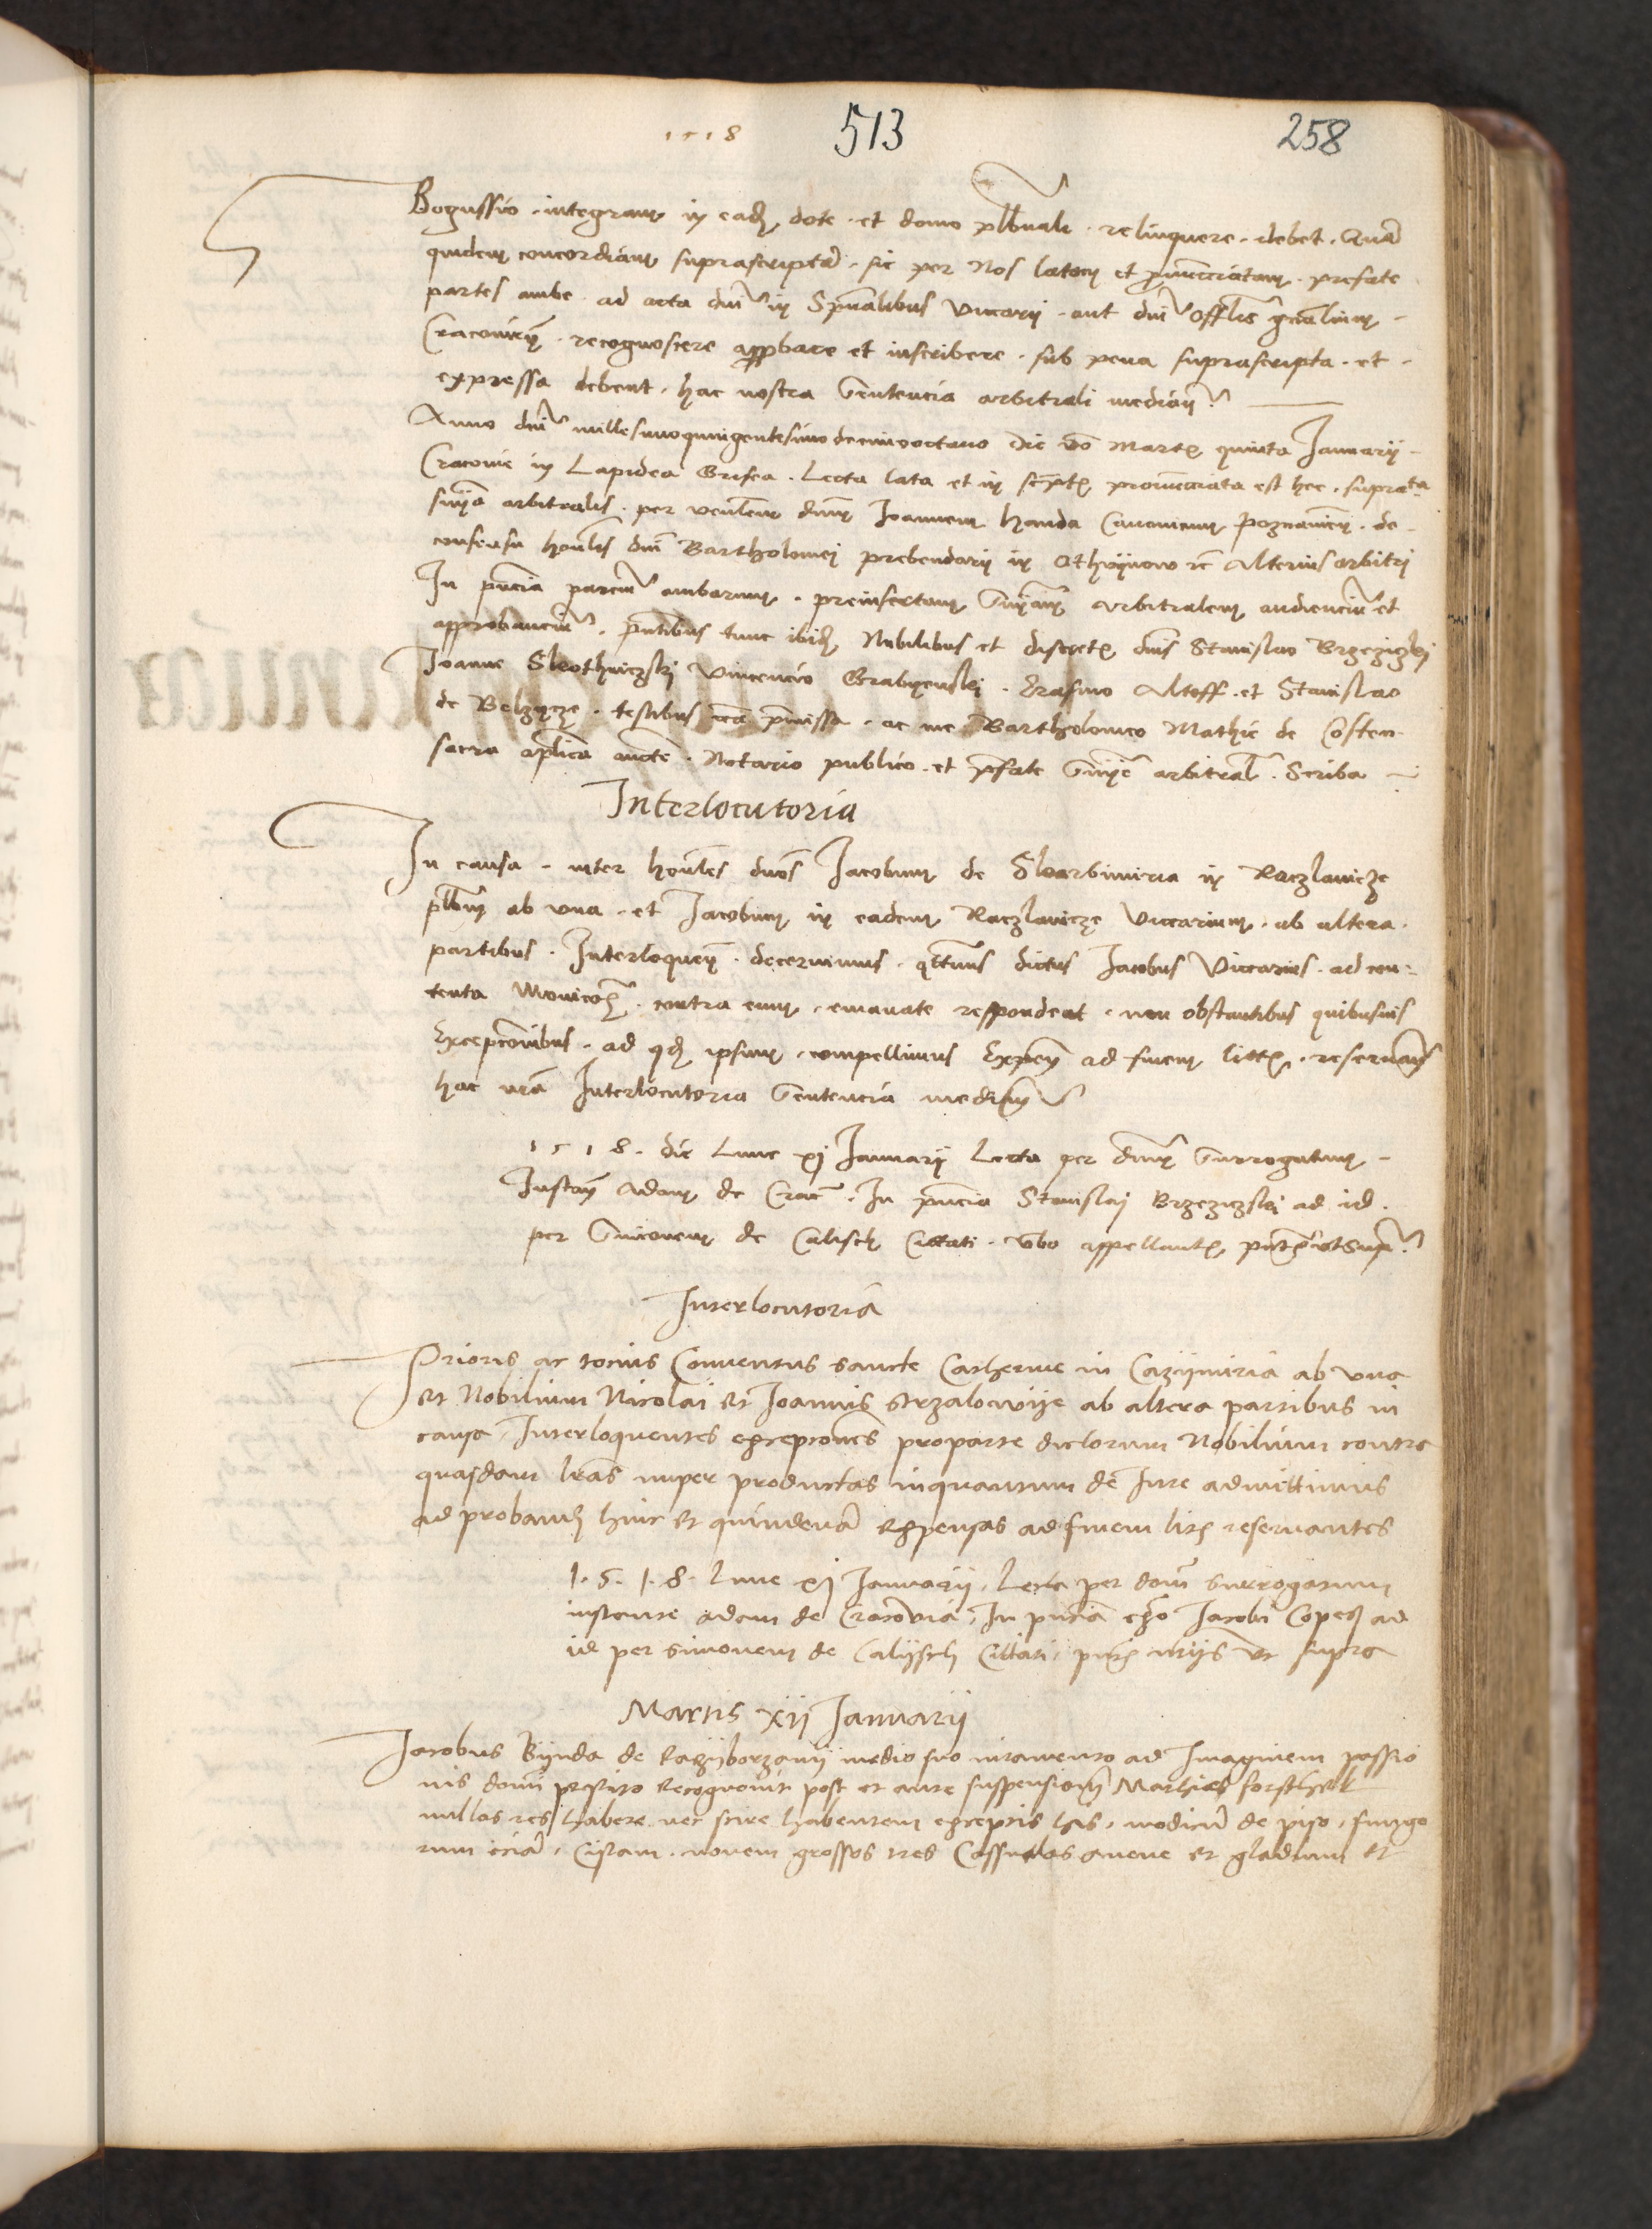 1518 513 258
Bogussio · integram in eadẽ dote · et domo plb̃nali · relinquere · debet · Quã
quidem concordiam suprascriptã · sic per Nos latam et ꝓnũcciatam · prefate
partes ambe ad acta dnĩ in Sp̃ualibus Vicarij · aut dnĩ Offlis gñalium
Cracovieñ · recognoscere approbare et inscribere · sub pena suprascripta · et
expressa debent · hac nostra Sentencia arbitrali median̄
Anno dnĩ millesimoquingentesimodecimooctavo die vo Martis quinta Januarij
Cracovie in Lapidea Grisea · Lecta lata et in scriptis pronũcciata est hec · suprata
snĩa arbitralis · per venlem dnm̃ Joannem Handa Canonicum Poznanieñ · de
consensu honlis dnĩ Bartholomei prebendarij in Othvijnow et Alterius arbitri
In pñcia parciũ ambarum · preinsertam Snĩam Arbitralem audienciũ et
approbanciũ · pñtibus tunc ibidẽ Nobilibus et discretis dnis Stanislao Brzeziczkj
Joanne Skothniczkj Vincencio Grabyenskj · Erasmo Altoff · et Stanislao
de Belzycze · testibus circa pmissa · ac me Bartholomeo Mathie de Costen
sacra aplica aucte · Notario publico · et p̃fate Snĩe arbitral · Scriba
Interlocutoria
In causa · inter honles dnos Jacobum de Skarbimiria in Raczlavicze
plbm̃ ab una · et Jacobum in eadem Raczlavicze Vicarium · ab altera
partibus · Interloqueñ · decernimus · qtenus dictus Jacobus Vicarius · ad con-
tenta Monicois̃ · contra eum · emanate respondeat · non obstantibus quibusvis
Excepconibus · ad qd̃ ipsum · compellimus Expeñ ad finem litis · reservan̄s
hac nrã Interlocutoria Sentencia median̄
1518 · die Lune xj Januarij Lecta per dnm̃ Surrogatum
Instañ Adam de Crac̃ · In pñcia Stanislaj Brzeziczskj ad id
per Simonem de Calisch Cittati · vbo appellantis pñtibus ut Sup̃
Interlocutoria
Prioris ac tocius Conventus sancte Catherine in Cazijmiria ab una
et Nobilium Nicolai et Joannis Strzalowije ab altera partibus in
causa, Interloquentes exceptiones proparte dictorum Nobilium contra
quasdam lras̃ nuper productas inquantum de Jure admittimus
ad probandũ hinc et quindenã expensas ad finem litis reservantes
1·5·1·8· Lune xj Januarij, Lecta per dom̃ surrogatum
instante Adam de Cracovia, In pñcia Jacobi Copecz ad
id per Simonem de Calijsch Cittati, pñtibus ut supra
Martis xij Januarij
Jacobus Bijnda de Razijborzanij medio suo iuramento ad Imaginem passio
nis domĩ prestito Recognovit post et ante suspensionẽ Mathie
nullas res habere nec scire habentem exceptis his, modicũ de piso, fungo
rum eciã, Cistam · novem grossos tres Cassulas avene et gladium et